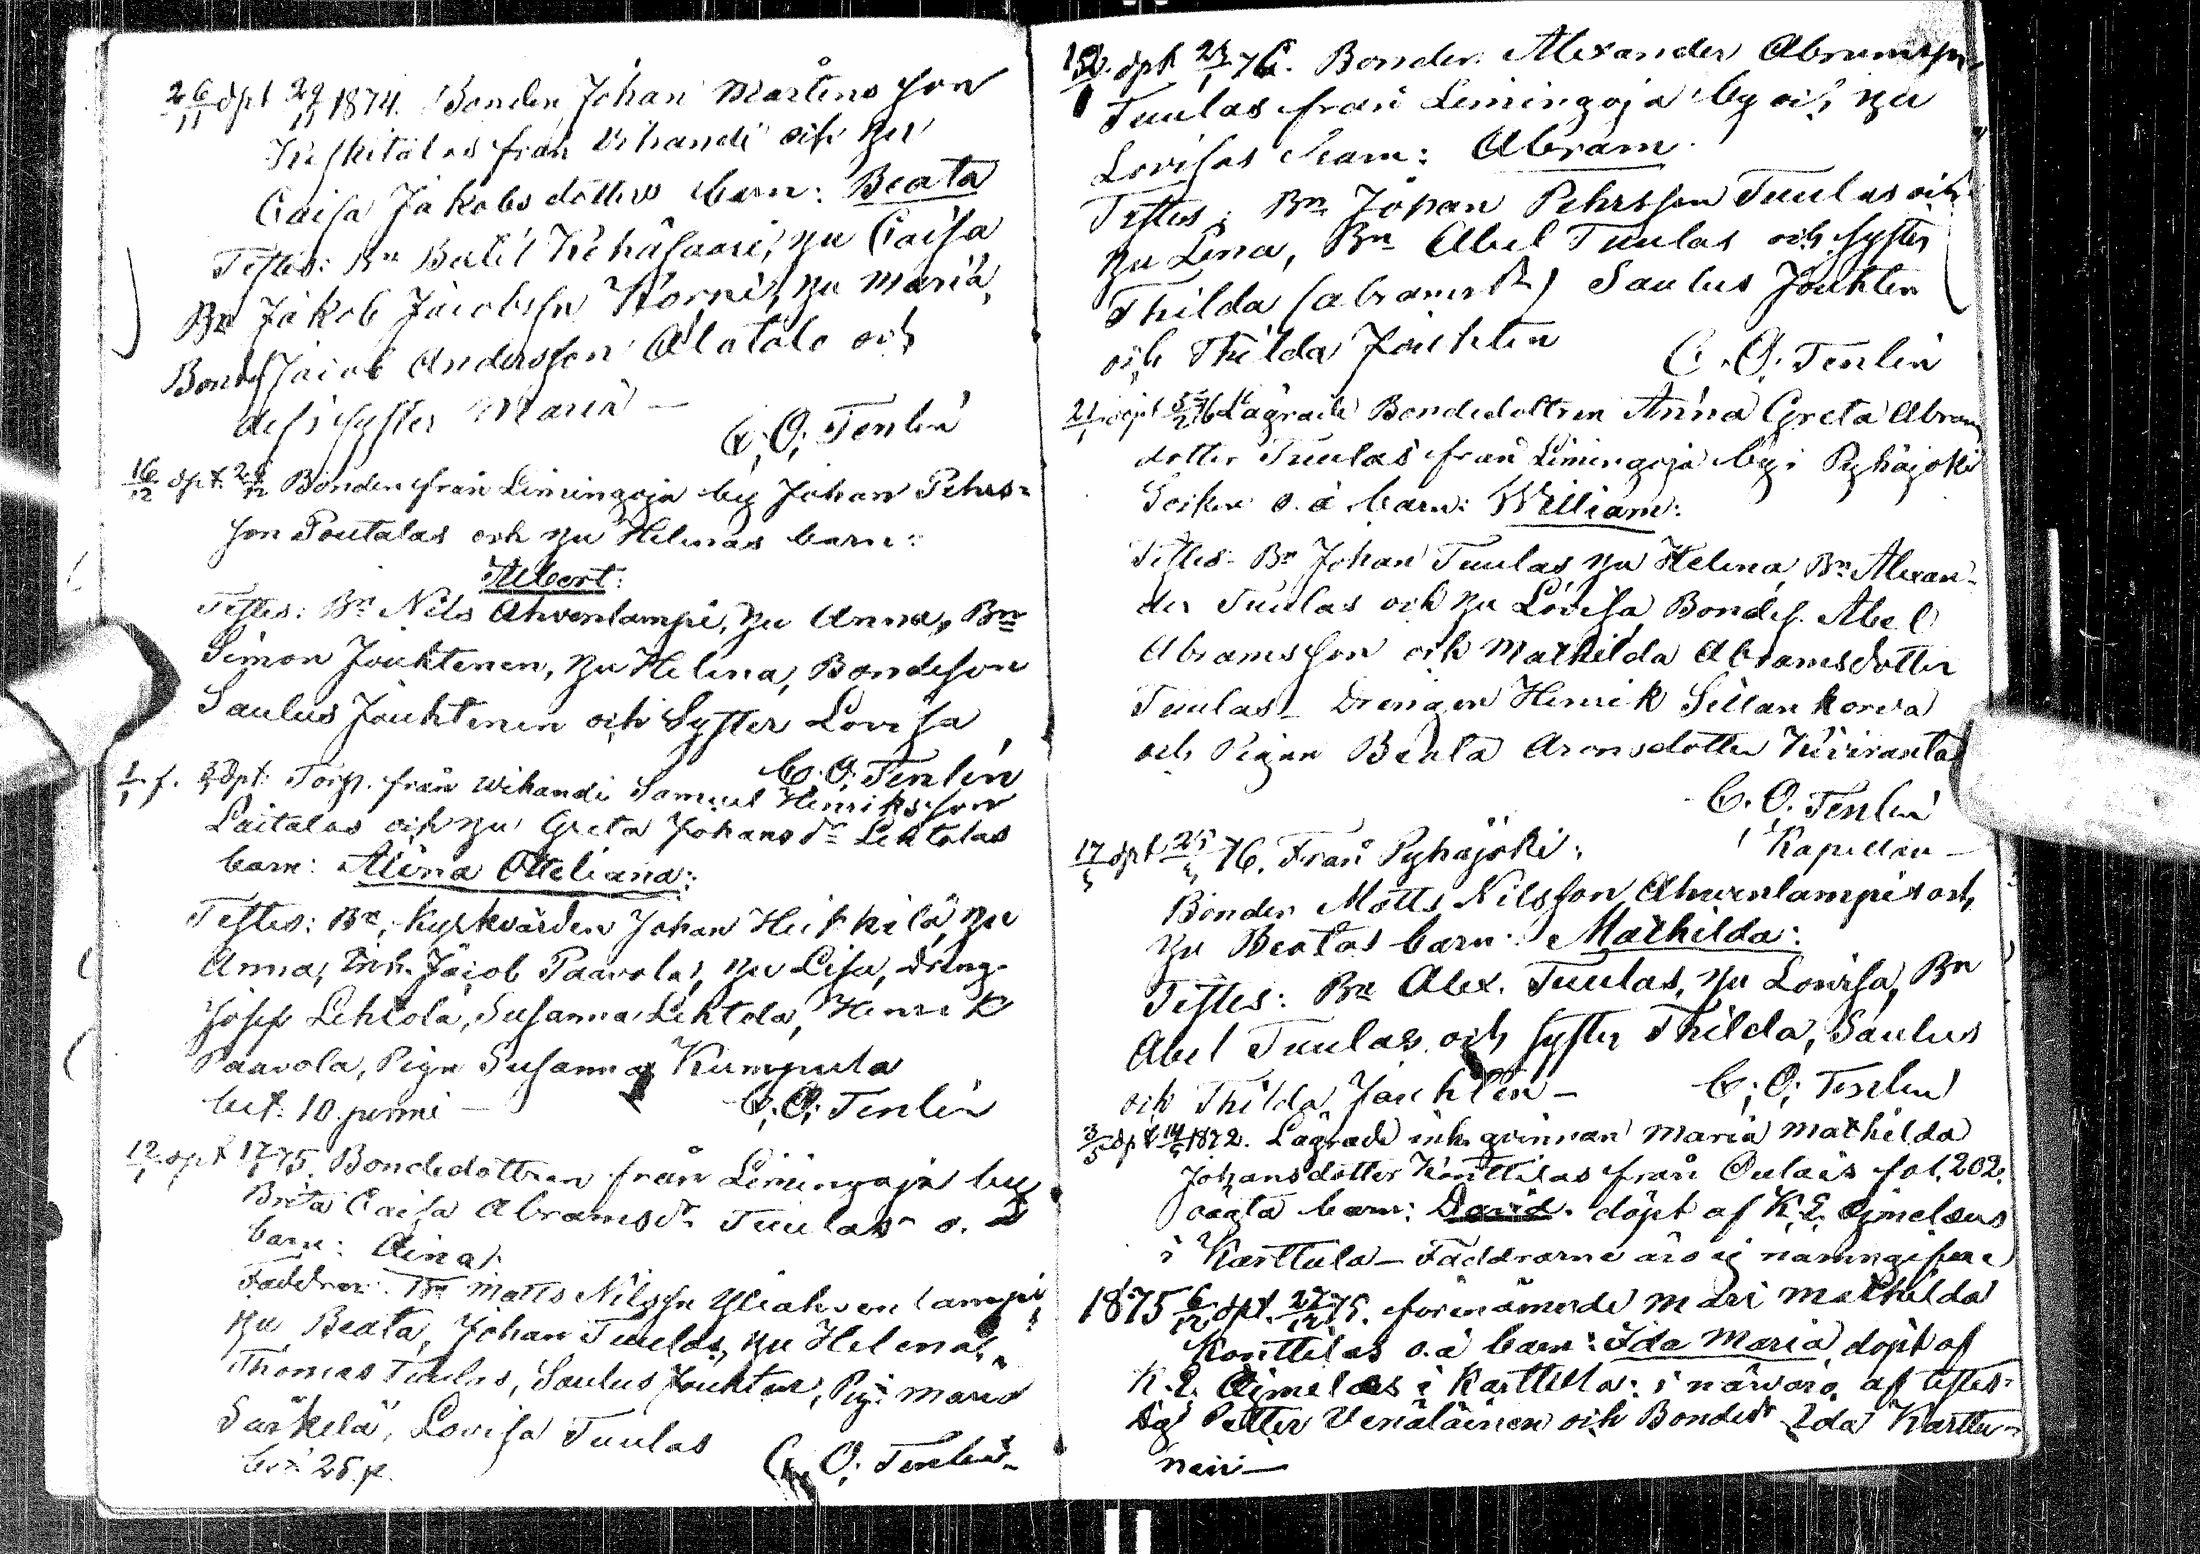 26/11 dpt 29/11 1874. Bonden Johan Mårtensson
Keskitalos från Vihandi och hu
Caisa Jakobsdotters barn: Beata
Testes: Bn Bertil Kehäsaari, hu Caisa
Bn Jakob Jacobssn Korpi, hu Maria,
Bondes. Jacob Andersson Alatalo och
dess syster Maria —
C. O. Tenlén
16/12 dpt 28/12 Bonden från Limingoja by Johan Pehrs-
son Poutalas och hu Helenas barn:
Albert:
Testes: Bn Nils Ahvenlampi, hu Anna, Bn
Simon Jouktenen, hu Helena, Bondeson
Saulus Jouktenen och Syster Lovisa
C. O. Tenlén
1/1 f. 3/1 dpt: Torp. från Wihandi Samuel Henriksson
Laitalas och hu Greta Johansdr Lehtolas
barn: Alina Otteliana:
Testes: Bn, Kyrkvärden Johan Heikkilä, hu
Anna, Inh. Jacob Paavola, hu Lisa, dräng.
Josef Lehtola, Susanna Lehtola, Henrik
Paavola, Pign Susanna Kumpula
bet. 10 penni —
C. O. Tenlén
12/1 dpt 17/1 75. Bondedottren från Limingoja by
Brita Caisa Abramsdr Tuulas o. ä
barn: Aina:
Faddrar: Bn Matts Nilssn Yliahvenlampi,
hu Beata, Johan Tuulas, hu Helena,
Thomas Tuulas, Saulus Joukten, Pig. Maria
Särkelä, Lovisa Tuulas
bet 25 p.
C. O. Tenlén
12/1 dpt 23/1 76. Bonden Alexander Abramssn
Tuulas från Limingoja by och hu
Lovisas barn: Abram.
Testes: Bn Johan Pehrsson Tuulas och
hu Lena, Bn Abel Tuulas och syster
Thilda (Abramsdr) Saulus Joukten
och Thilda Joukten
C. O. Tenlén
21/1 dpt 5/2 76 Lägrade Bondedottren Anna Greta Abrams
dotter Tuulas från Limingoja by i Pyhäjoki
Socken o. ä barn: William:
Testes: Bn Johan Tuulas, hu Helena, Bn Alexan-
der Tuulas och hu Lovisa, Bondes. Abel
Abramsson och Mathilda Abramsdotter
Tuulas — Drengen Henrik Sillankorva
och Pigan Beata Aronsdotter Kiviranta
C. O. Tenlén
Kapellan —
17/5 dpt 25/5 76. Från Pyhäjoki:
Bonden Matts Nilsson Ahvenlampis och
hu Beatas barn: Mathilda:
Testes: Bn Alex. Tuulas, hu Lovisa, Bn
Abel Tuulas och syster Thilda, Saulus
och Thilda Joukten —
C. O. Tenlén
3/5 dpt 14/5 1872. Lägrade inh. qvinnan Maria Mathilda
Johansdotter Konttilas från Oulais fol. 202.
oägta barn: David. döpt af K. E. Ajmelæus
i Karttula — Faddrarne äro ej namngifne
1875 6/12 dpt. 27/12 75. förenämnde Mari Mathilda
Konttilas o.ä barn: Ida Maria, döpt af
K. E. Ajmelæus i Karttula: i närvaro af testes:
Dg Petter Venäläinen och Bondedr Ida Karttu-
nen —